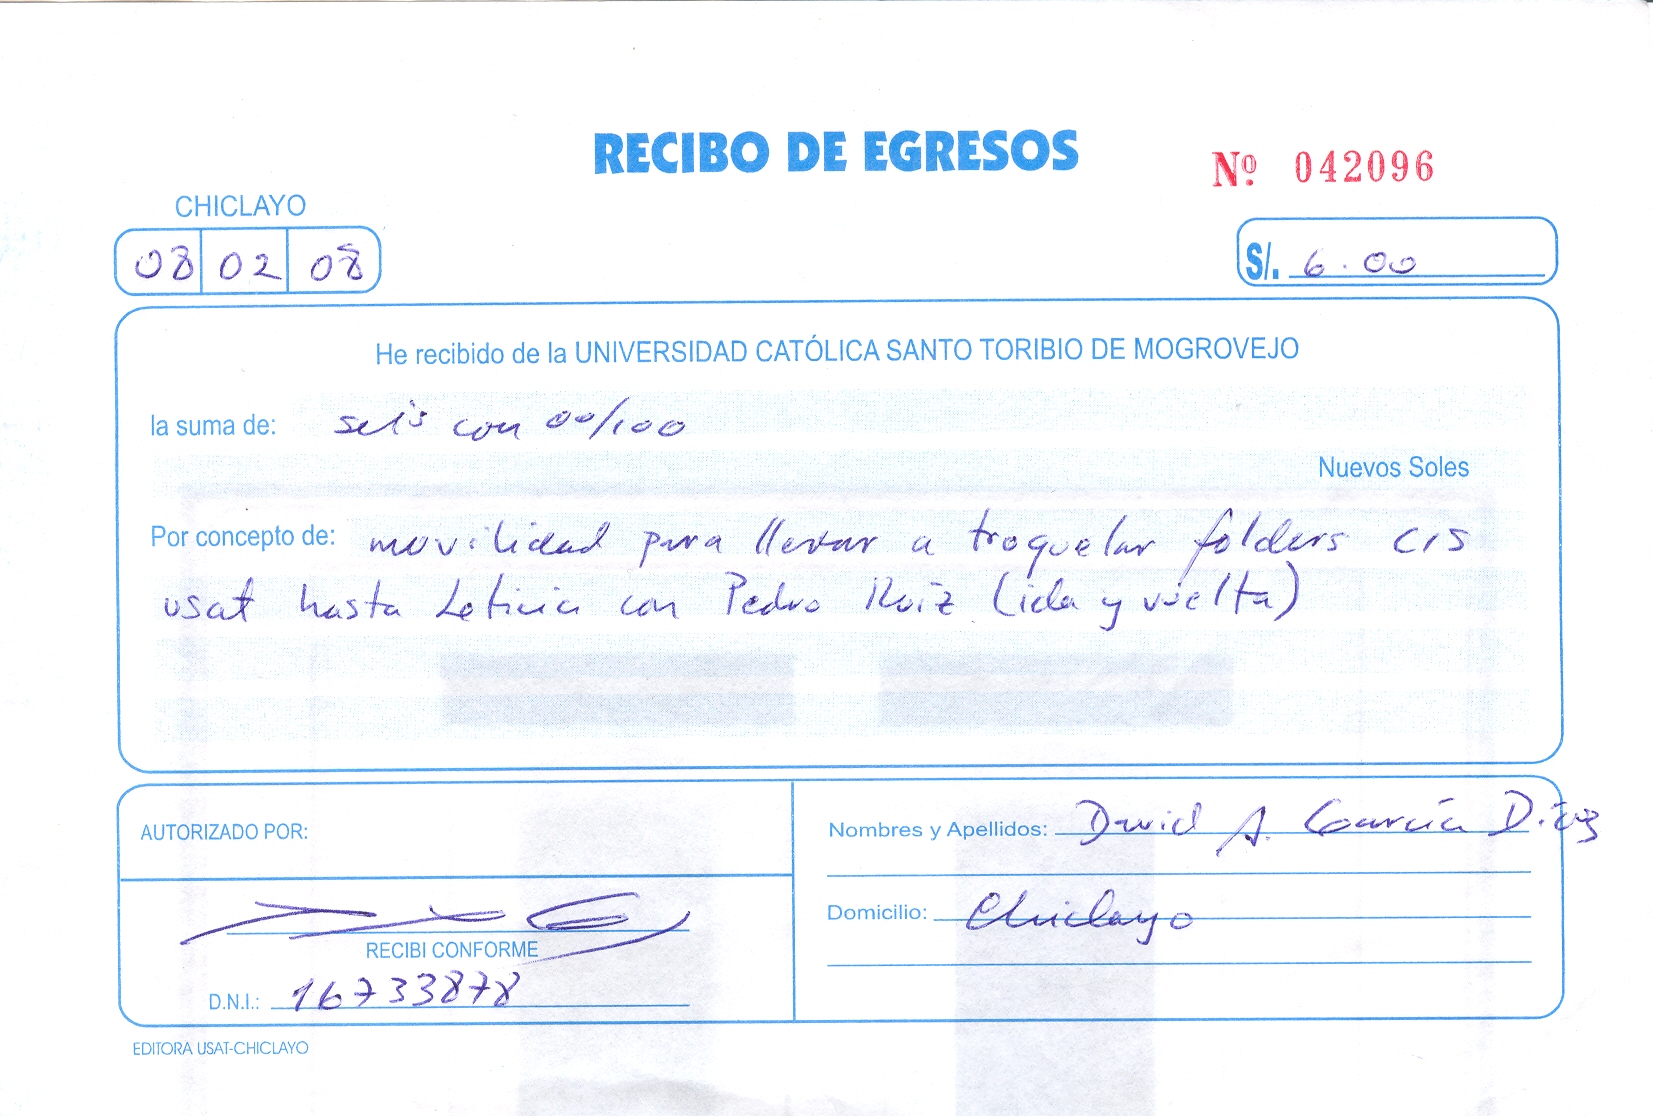 RECIBO DE EGRESOS
Nº 042096
CHICLAYO
08 02 08
S/. 6.00
He recibido de la UNIVERSIDAD CATÓLICA SANTO TORIBIO DE MOGROVEJO
la suma de: seis con 00/100
Nuevos Soles
Por concepto de: movilidad para llevar a troquelar folders CIS
usat hasta Leticia con Pedro Ruiz (ida y vuelta)
AUTORIZADO POR:
Nombres y Apellidos: David A. García Díaz
Domicilio: Chiclayo
RECIBI CONFORME
D.N.I.: 16733878
EDITORA USAT-CHICLAYO